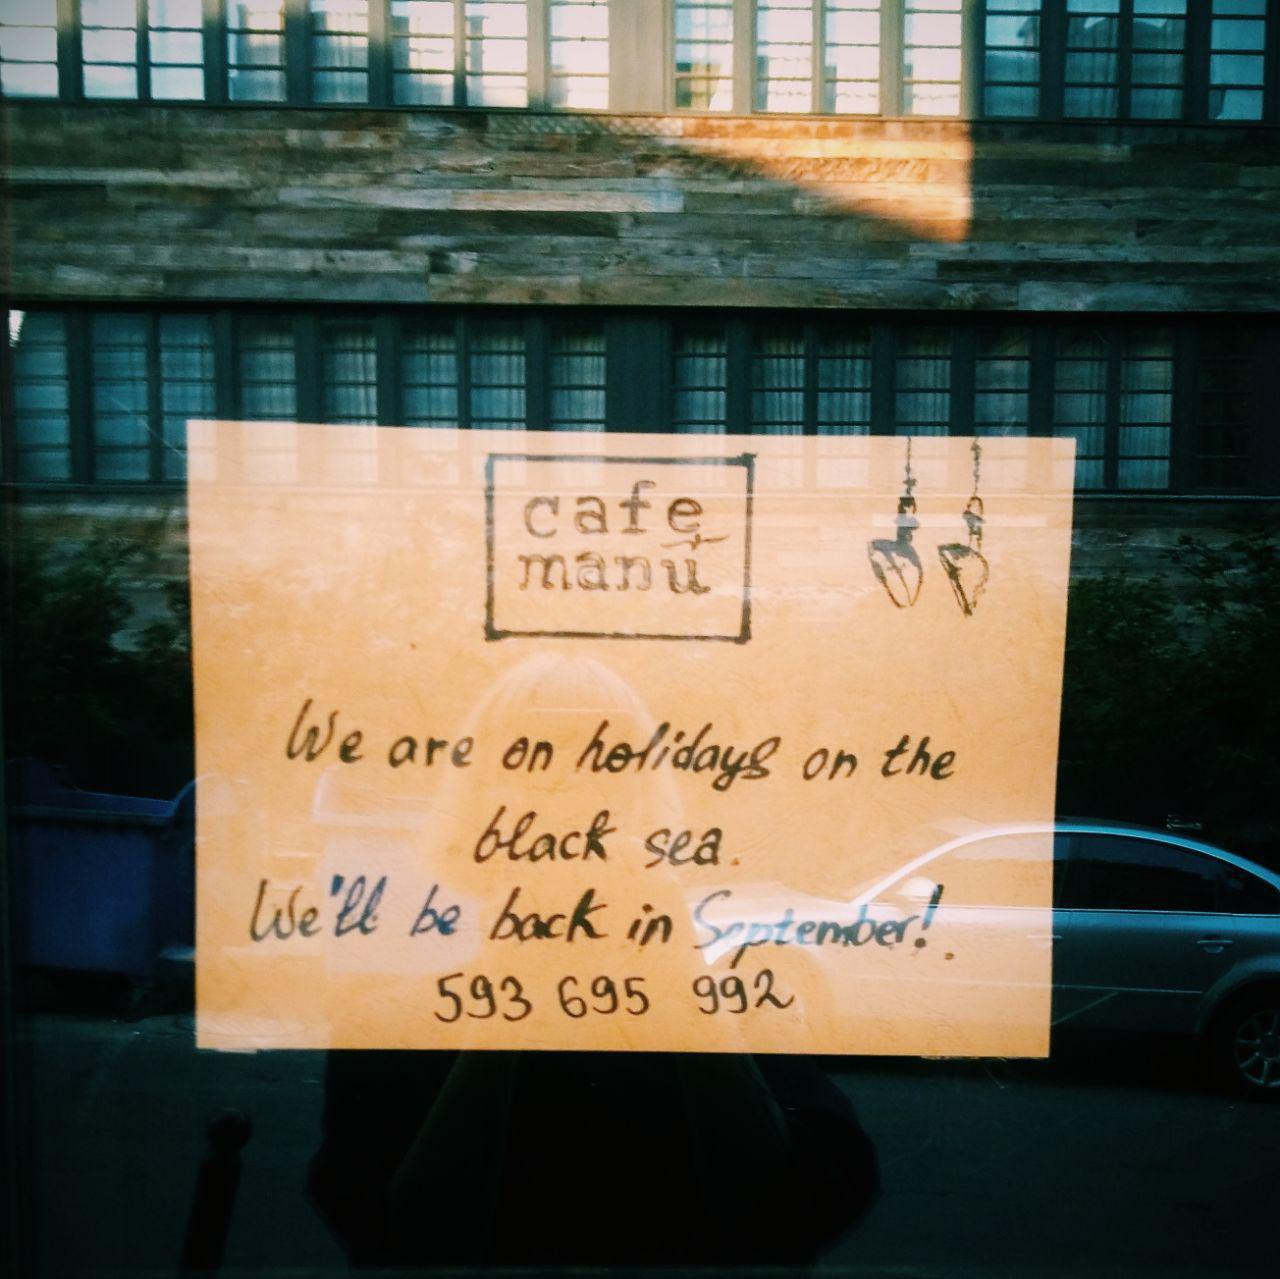 cafe
manú
We are on holidays on the
black sea.
We'll be back in September!
593 695 992